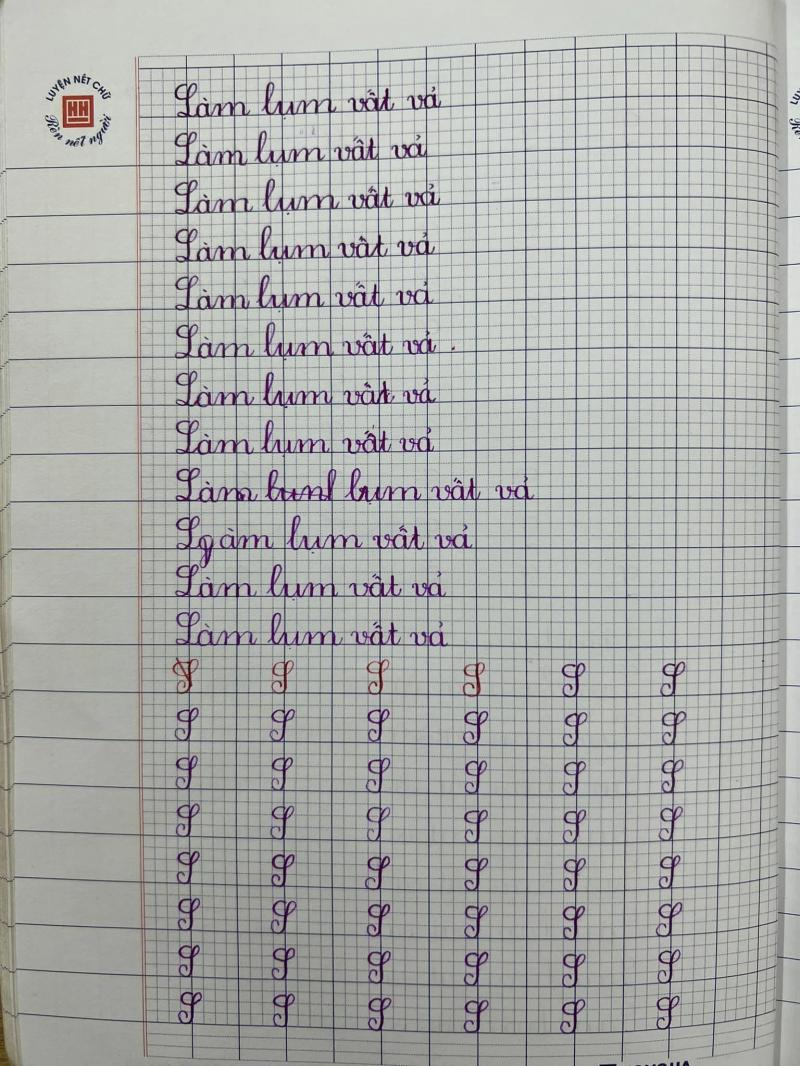 LUYỆN NÉT CHỮ
HH
Rèn nết người
Làm lụm vất vả
Làm lụm vất vả
Làm lụm vất vả
Làm lụm vất vả
Làm lụm vất vả
Làm lụm vất vả .
Làm lụm vất vả
Làm lụm vất vả
Làm lụm vất vả
Lgàm lụm vất vả
Làm lụm vất vả
Làm lụm vất vả
S S S S S S
S S S S S S
S S S S S S
S S S S S S
S S S S S S
S S S S S S
S S S S S S
S S S S S S